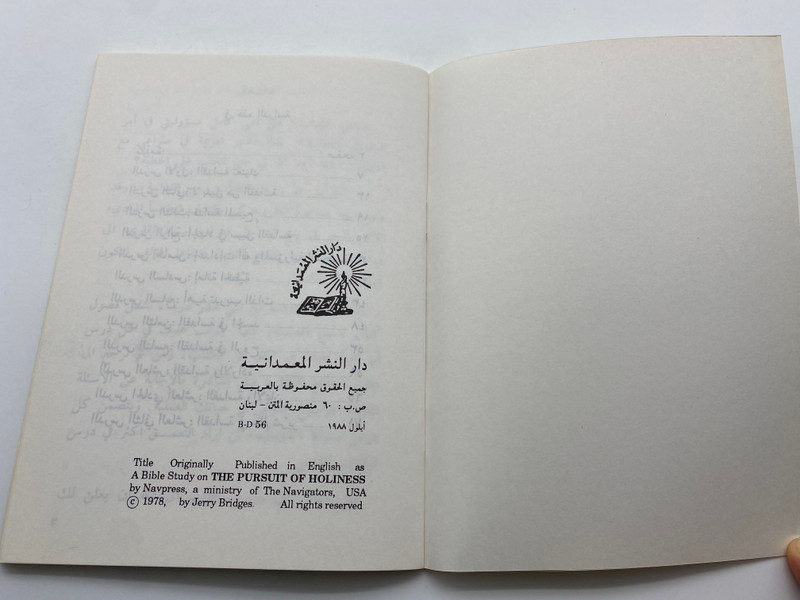 دار النشر المعمدانية
دار النشر المعمدانية
جميع الحقوق محفوظة بالعربية
ص.ب : ٦٠ منصورية المتن - لبنان
أيلول ١٩٨٨
B-D 56
Title Originally Published in English as
A Bible Study on THE PURSUIT OF HOLINESS
by Navpress, a ministry of The Navigators, USA
© 1978, by Jerry Bridges. All rights reserved